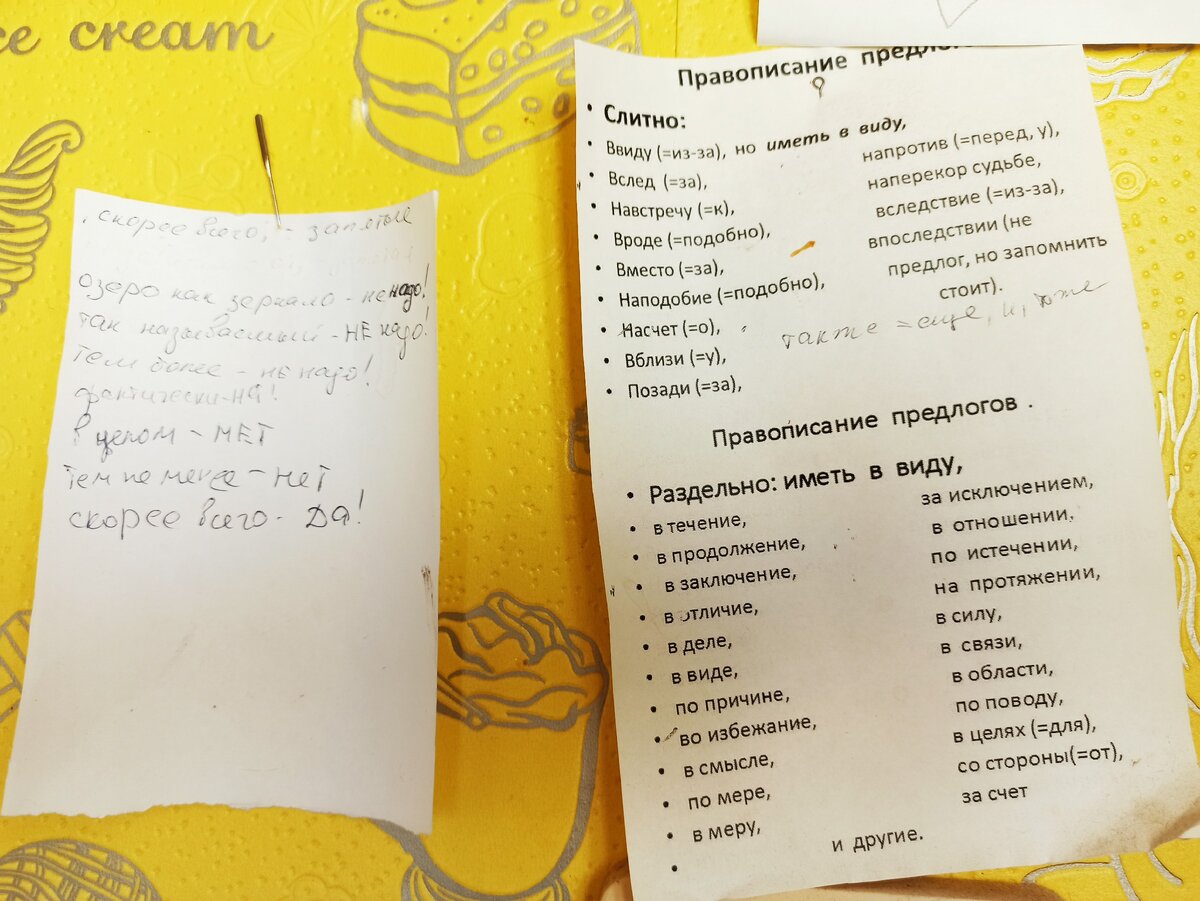 ce cream
, скорее всего, - запятые
озеро как зеркало - не надо!
так называемый - НЕ надо!
тем более - не надо!
фактически - НЯ!
в целом - НЕТ
тем не менее - НЕТ
скорее всего - ДА!
Правописание предлогов
• Слитно:
• Ввиду (=из-за), но иметь в виду,
• Вслед (=за),
• Навстречу (=к),
• Вроде (=подобно),
• Вместо (=за),
• Наподобие (=подобно),
• Насчет (=о),
• Вблизи (=у),
• Позади (=за),
напротив (=перед, у),
наперекор судьбе,
вследствие (=из-за),
впоследствии (не
предлог, но запомнить
стоит).
также = еще, и, тоже
Правописание предлогов .
• Раздельно: иметь в виду,
• в течение,
• в продолжение,
• в заключение,
• в отличие,
• в деле,
• в виде,
• по причине,
• во избежание,
• в смысле,
• по мере,
• в меру,
•
за исключением,
в отношении,
по истечении,
на протяжении,
в силу,
в связи,
в области,
по поводу,
в целях (=для),
со стороны(=от),
за счет
и другие.